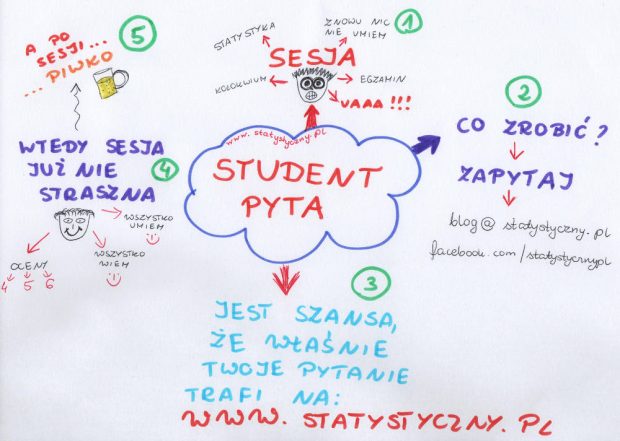 www.statystyczny.pl
STUDENT
PYTA
1
SESJA
STATYSTYKA
ZNOWU NIC
NIE UMIEM
KOLOKWIUM
EGZAMIN
UAAA!!!
2
CO ZROBIĆ?
ZAPYTAJ
blog@statystyczny.pl
facebook.com/statystycznypl
3
JEST SZANSA,
ŻE WŁAŚNIE
TWOJE PYTANIE
TRAFI NA:
WWW.STATYSTYCZNY.PL
4
WTEDY SESJA
JUŻ NIE
STRASZNA
WSZYSTKO
UMIEM
:)
WSZYSTKO
WIEM
:)
OCENY
4 5 6
5
A PO
SESJI...
...PIWKO